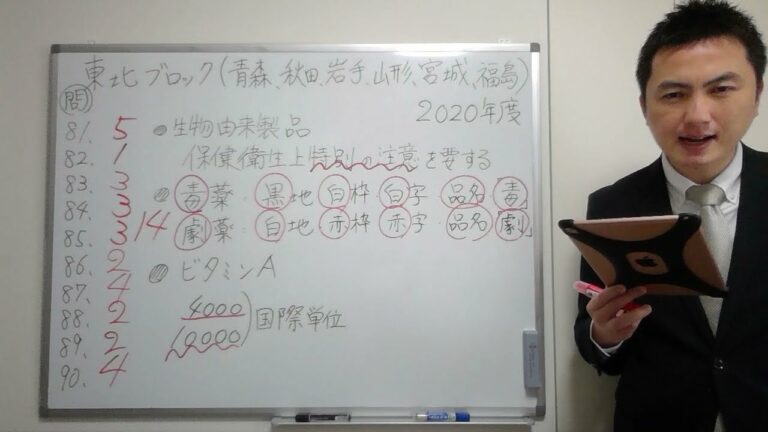 東北ブロック(青森、秋田、岩手、山形、宮城、福島)
2020年度
問
81. 5
82. 1
83. 3
84. 3
85. 3 14
86. 2
87. 4
88. 2
89. 2
90. 4
生物由来製品
保健衛生上特別の注意を要する
毒薬・黒地 白枠 白字・品名「毒」
劇薬・白地 赤枠 赤字・品名「劇」
ビタミンA
4000
10000
国際単位